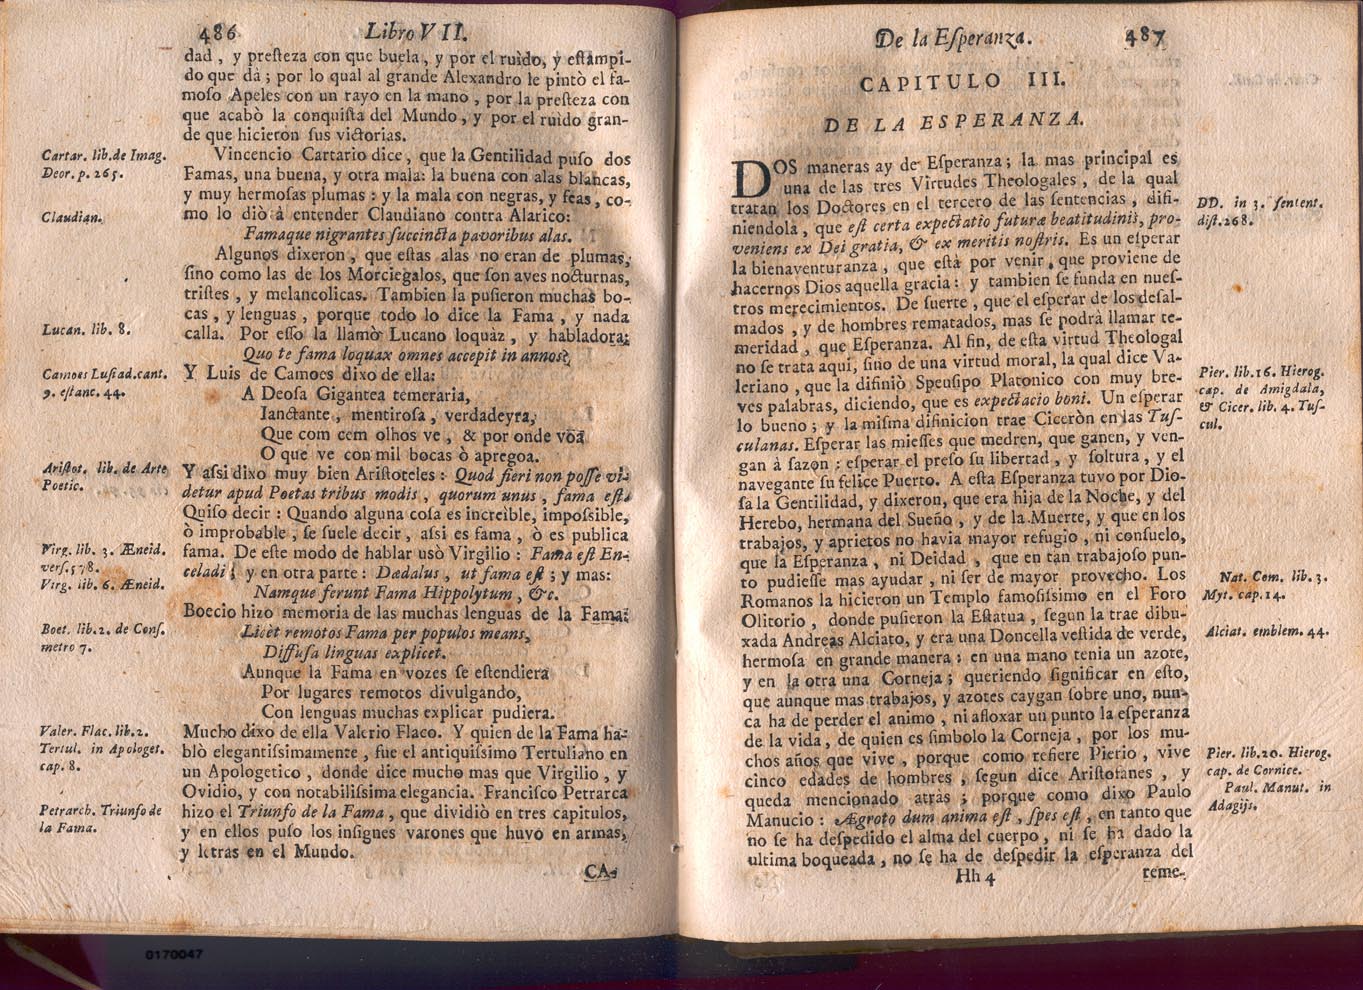 486 Libro VII.
dad , y presteza con que buela , y por el ruìdo, y estampi-
do que dà ; por lo qual al grande Alexandro le pintò el fa-
moso Apeles con un rayo en la mano , por la presteza con
que acabò la conquista del Mundo , y por el ruìdo gran-
de que hicieron sus victorias.
Vincencio Cartario dice , que la Gentilidad puso dos
Famas, una buena, y otra mala: la buena con alas blancas,
y muy hermosas plumas : y la mala con negras, y feas, co-
mo lo diò à entender Claudiano contra Alarico:
Famaque nigrantes succincta pavoribus alas.
Algunos dixeron , que estas alas no eran de plumas,
sino como las de los Morciegalos, que son aves nocturnas,
tristes , y melancolicas. Tambien la pusieron muchas bo-
cas , y lenguas , porque todo lo dice la Fama , y nada
calla. Por esso la llamò Lucano loquàz , y habladora:
Quo te fama loquax omnes accepit in annos?
Y Luis de Camoes dixo de ella:
A Deosa Gigantea temeraria,
Ianctante , mentirosa , verdadeyra,
Que com cem olhos ve , & por onde voa
O que ve con mil bocas ò apregoa.
Y assi dixo muy bien Aristoteles : Quod fieri non posse vi-
detur apud Poetas tribus modis , quorum unus , fama est.
Quiso decir : Quando alguna cosa es increìble, impossible,
ò improbable , se suele decir , assi es fama , ò es publica
fama. De este modo de hablar usò Virgilio : Fama est En-
celadi ; y en otra parte : Dædalus , ut fama est ; y mas:
Namque ferunt Fama Hippolytum , &c.
Boecio hizo memoria de las muchas lenguas de la Fama:
Licèt remotos Fama per populos means,
Diffusa linguas explicet.
Aunque la Fama en vozes se estendiera
Por lugares remotos divulgando,
Con lenguas muchas explicar pudiera.
Mucho dixo de ella Valerio Flaco. Y quien de la Fama ha-
blò elegantissimamente , fue el antiquissimo Tertuliano en
un Apologetico , donde dice mucho mas que Virgilio , y
Ovidio, y con notabilissima elegancia. Francisco Petrarca
hizo el Triunfo de la Fama , que dividiò en tres capitulos,
y en ellos puso los insignes varones que huvo en armas,
y letras en el Mundo.
CA-
Cartar. lib. de Imag.
Deor. p. 265.
Claudian.
Lucan. lib. 8.
Camoes Lusiad. cant.
9. estanc. 44.
Aristot. lib. de Arte
Poetic.
Virg. lib. 3. Æneid.
vers. 578.
Virg. lib. 6. Æneid.
Boet. lib. 2. de Cons.
metro 7.
Valer. Flac. lib. 2.
Tertul. in Apologet.
cap. 8.
Petrarch. Triunfo de
la Fama.
De la Esperanza. 487
CAPITULO III.
DE LA ESPERANZA.
DOS maneras ay de Esperanza; la mas principal es
una de las tres Virtudes Theologales , de la qual
tratan los Doctores en el tercero de las sentencias , difi-
niendola , que est certa expectatio futuræ beatitudinis, pro-
veniens ex Dei gratia, & ex meritis nostris. Es un esperar
la bienaventuranza , que està por venir , que proviene de
hacernos Dios aquella gracia : y tambien se funda en nues-
tros merecimientos. De suerte , que el esperar de los desal-
mados , y de hombres rematados, mas se podrà llamar te-
meridad , que Esperanza. Al fin, de esta virtud Theologal
no se trata aqui, sino de una virtud moral, la qual dice Va-
leriano , que la difiniò Speusipo Platonico con muy bre-
ves palabras, diciendo, que es expectacio boni. Un esperar
lo bueno ; y la misma difinicion trae Ciceròn en las Tus-
culanas. Esperar las miesses que medren, que ganen, y ven-
gan à sazon : esperar el preso su libertad , y soltura , y el
navegante su felice Puerto. A esta Esperanza tuvo por Dio-
sa la Gentilidad, y dixeron, que era hija de la Noche, y del
Herebo, hermana del Sueño , y de la Muerte, y que en los
trabajos, y aprietos no havia mayor refugio , ni consuelo,
que la Esperanza , ni Deidad , que en tan trabajoso pun-
to pudiesse mas ayudar , ni ser de mayor provecho. Los
Romanos la hicieron un Templo famosissimo en el Foro
Olitorio , donde pusieron la Estatua , segun la trae dibu-
xada Andreas Alciato, y era una Doncella vestida de verde,
hermosa en grande manera : en una mano tenia un azote,
y en la otra una Corneja ; queriendo significar en esto,
que aunque mas trabajos, y azotes caygan sobre uno, nun-
ca ha de perder el animo , ni afloxar un punto la esperanza
de la vida , de quien es simbolo la Corneja , por los mu-
chos años que vive , porque como refiere Pierio , vive
cinco edades de hombres , segun dice Aristofanes , y
queda mencionado atràs ; porque como dixo Paulo
Manucio : Ægroto dum anima est , spes est , en tanto que
no se ha despedido el alma del cuerpo , ni se ha dado la
ultima boqueada , no se ha de despedir la esperanza del
Hh 4 reme-
DD. in 3. sentent.
dist. 268.
Pier. lib. 16. Hierog.
cap. de Amigdala,
& Cicer. lib. 4. Tus-
cul.
Nat. Com. lib. 3.
Myt. cap. 14.
Alciat. emblem. 44.
Pier. lib. 20. Hierog.
cap. de Cornice.
Paul. Manut. in
Adagijs.
0170047